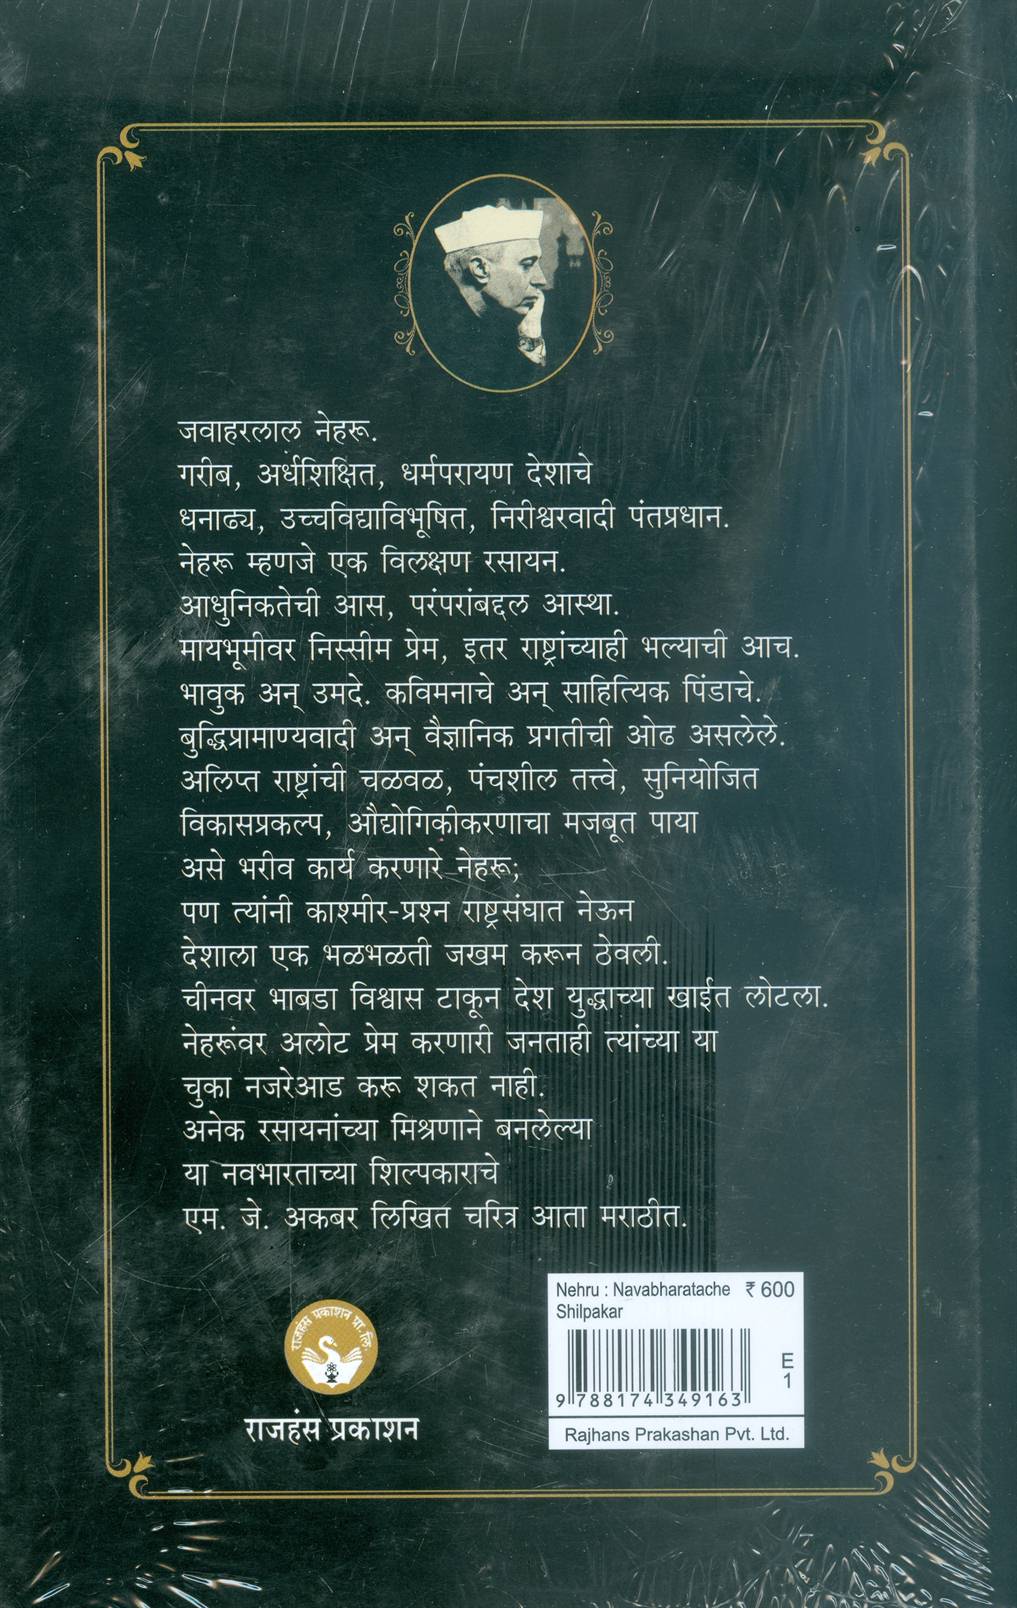 जवाहरलाल नेहरू.
गरीब, अर्धशिक्षित, धर्मपरायण देशाचे
धनाढ्य, उच्चविद्याविभूषित, निरीश्वरवादी पंतप्रधान.
नेहरू म्हणजे एक विलक्षण रसायन.
आधुनिकतेची आस, परंपरांबद्दल आस्था.
मायभूमीवर निस्सीम प्रेम, इतर राष्ट्रांच्याही भल्याची आच.
भावुक अन् उमदे. कविमनाचे अन् साहित्यिक पिंडाचे.
बुद्धिप्रामाण्यवादी अन् वैज्ञानिक प्रगतीची ओढ असलेले.
अलिप्त राष्ट्रांची चळवळ, पंचशील तत्त्वे, सुनियोजित
विकासप्रकल्प, औद्योगिकीकरणाचा मजबूत पाया
असे भरीव कार्य करणारे नेहरू;
पण त्यांनी काश्मीर-प्रश्न राष्ट्रसंघात नेऊन
देशाला एक भळभळती जखम करून ठेवली.
चीनवर भाबडा विश्वास टाकून देश युद्धाच्या खाईत लोटला.
नेहरूंवर अलोट प्रेम करणारी जनताही त्यांच्या या
चुका नजरेआड करू शकत नाही.
अनेक रसायनांच्या मिश्रणाने बनलेल्या
या नवभारताच्या शिल्पकाराचे
एम. जे. अकबर लिखित चरित्र आता मराठीत.
राजहंस प्रकाशन प्रा. लि.
राजहंस प्रकाशन
Nehru : Navabharatache ₹ 600
Shilpakar
E
1
9 788174 349163
Rajhans Prakashan Pvt. Ltd.